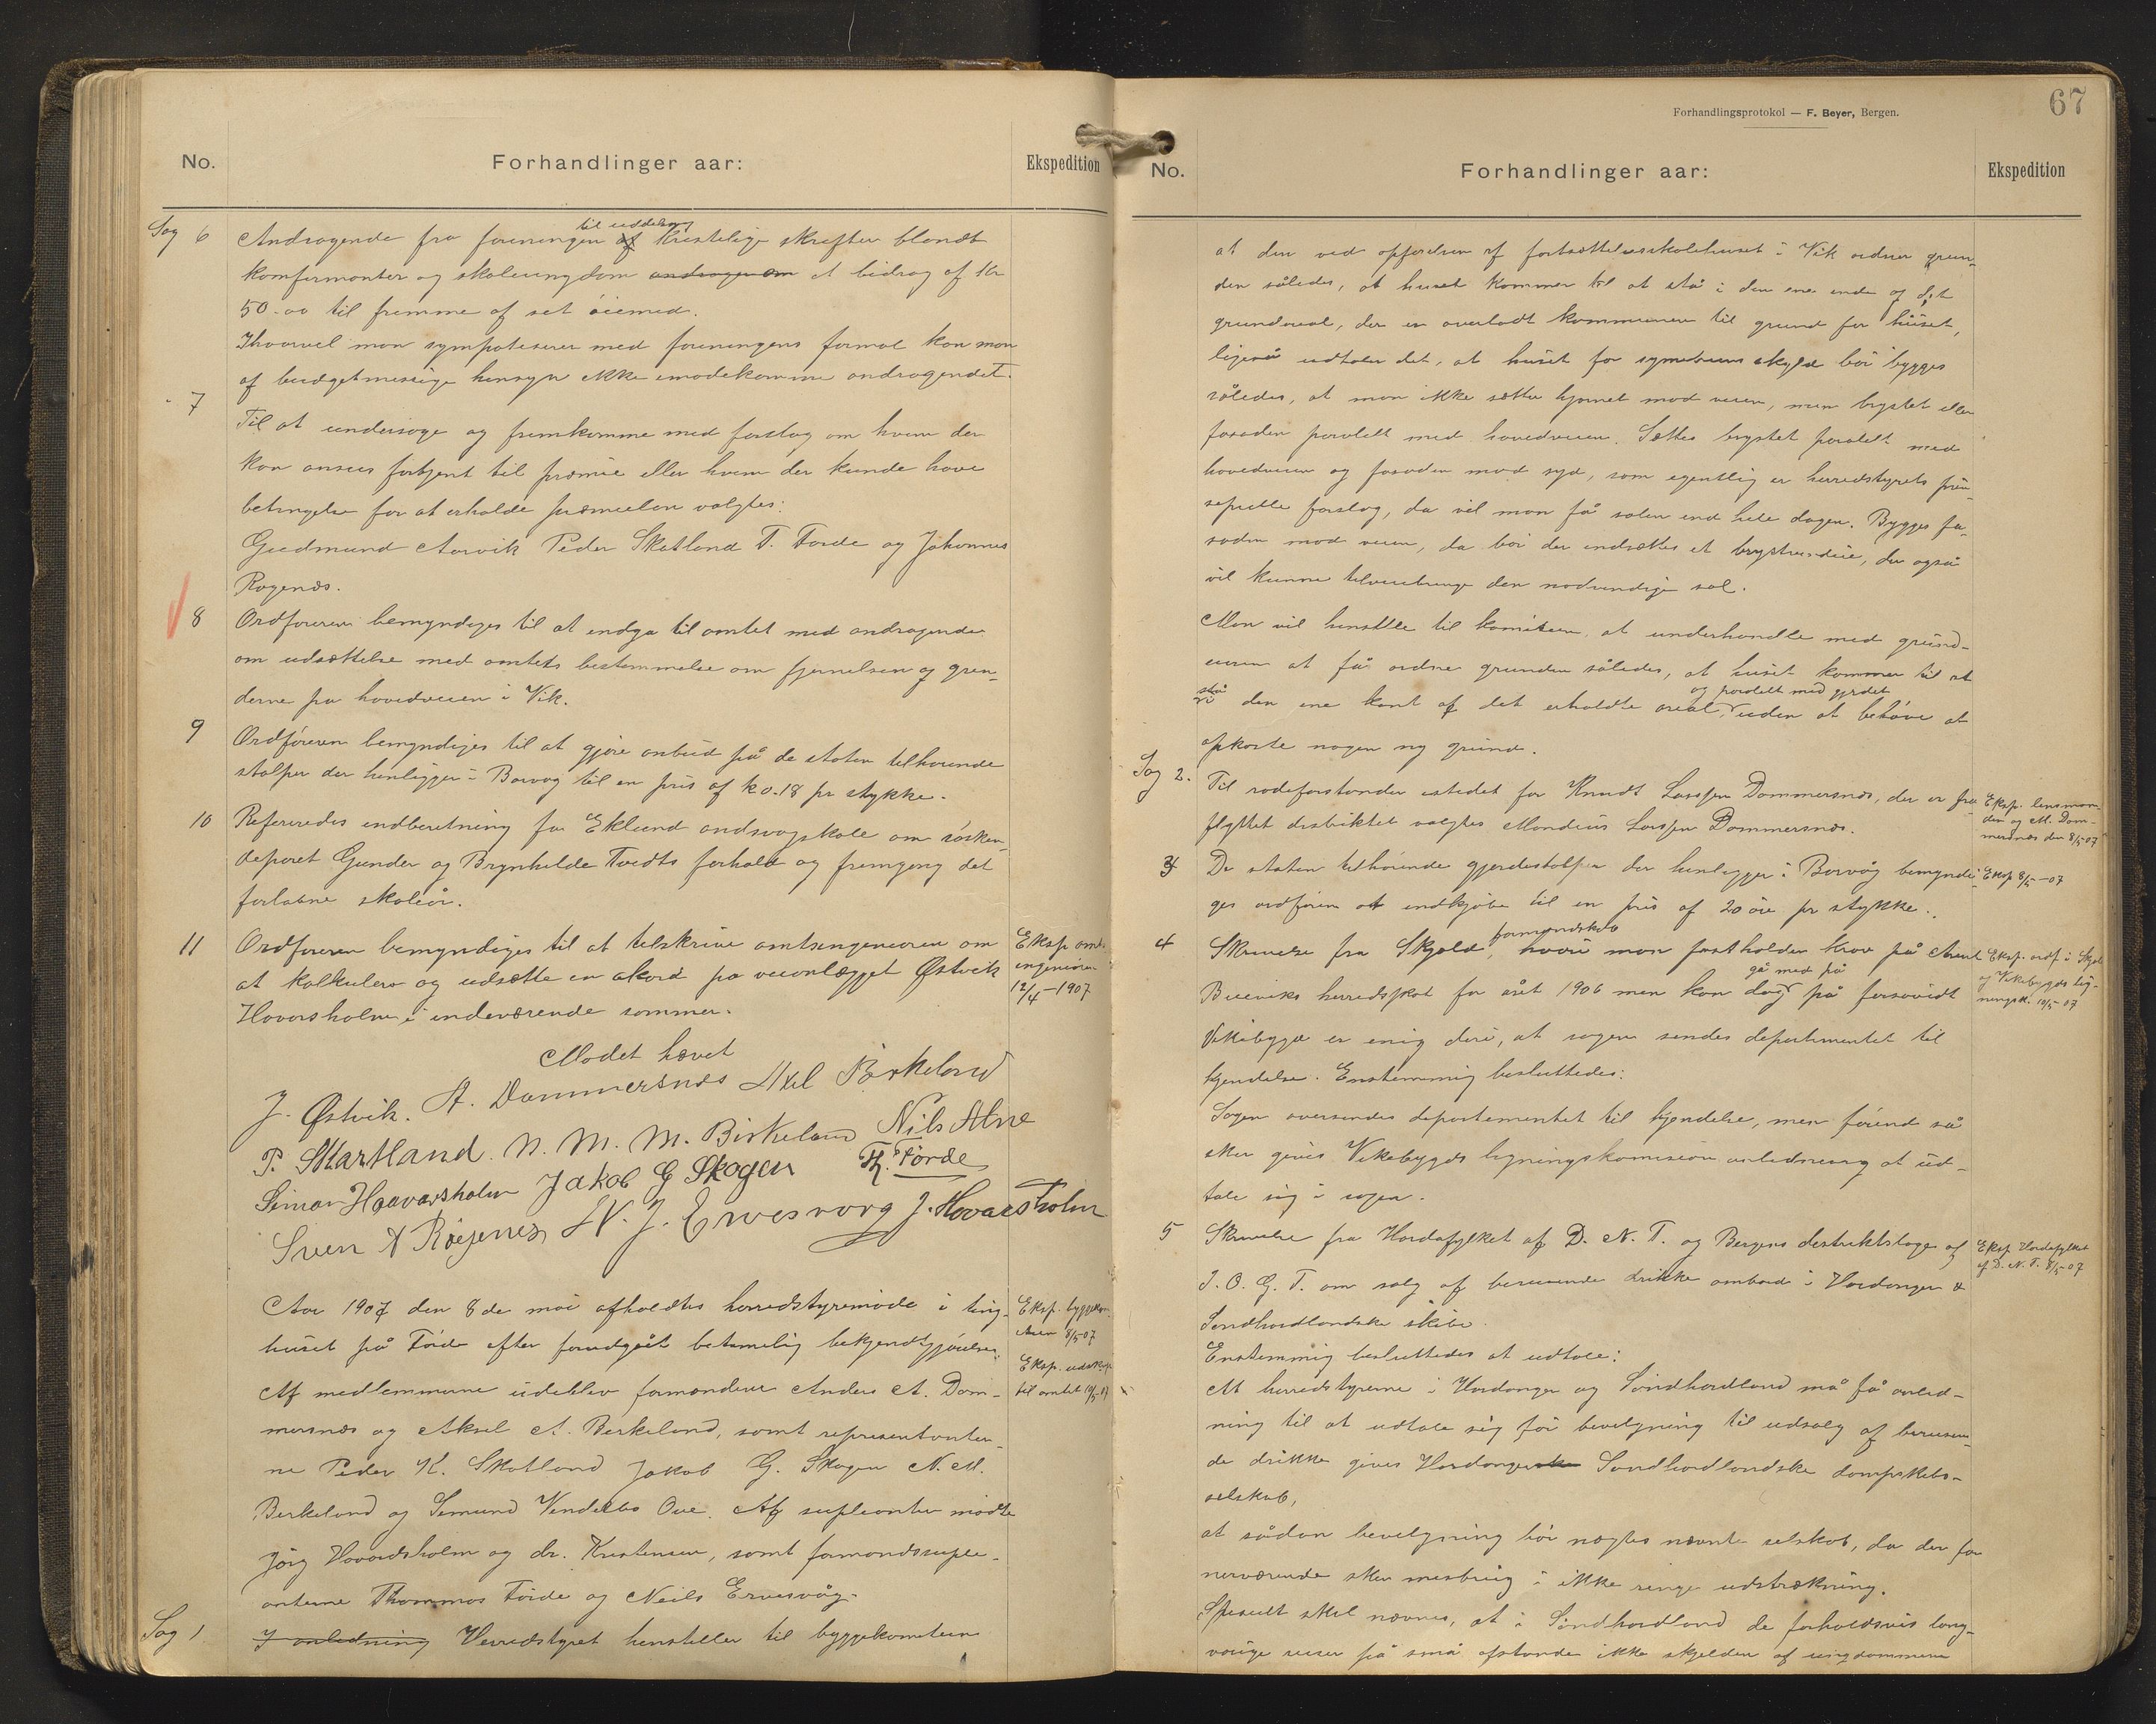 No.
Forhandlinger aar:
Ekspedition
Sag 6
Andragende fra foreningen til uddeling af kristelige skrifter blandt
komfermanter og skoleungdom andrager om et bidrag af Kr
50.00 til fremme af set öiemed.
Ihvorvel man sympateserer med foreningens formal kan man
af budgetmessige hensyn ikke imødekomme andragendet.
" 7
Til at undersøge og fremkomme med forslag om hvem der
kan ansees fortjent til præmie eller hvem der kunde have
betingelse for at erholde præmielön valgtes:
Gudmund Aarvik Peder Skatland T. Førde og Johannes
Røgenes.
8
Ordføreren bemyndiges til at indgå til amtet med andragende
om udsættelse med amtets bestemmelse om fjernelsen af grin-
derne på hovedveien i Vik.
9
Ordføreren bemyndiges til at gjøre anbud på de staten tilhørende
stolper der henligger i Borvåg til en pris af k 0.18 pr stykke.
10
Refereredes indberetning fra Eklund andsvageskole om søsken-
deparet Gunder og Brynhilde Tvedts forhold og fremgang det
forløbne skoleår.
11
Ordføreren bemyndiges til at tilskrive amtsingeniøren om
at kalkulere og udsætte en akord på veianlægget Østvik
Hovarsholm i indeværende sommer.
Eksp. amts
ingeniøren
12/4-1907
Mødet hævet
J. Østvik. A. Dommersnes Axel Birkeland
P. Skartland. N. M. M. Birkeland Nils Alne
Simon Haavarsholm Jakob G Skogen Th. Førde
Sven A Røgenes N. J. Ervesvaag J. Hovarsholm
Aar 1907 den 8de mai afholdtes herredstyremøde i ting-
huset på Førde efter forudgåt betimelig bekjendtgjørelse.
Af medlemmerne udeblev formændene Anders A. Dom-
mersnes og Aksel A. Berkeland, samt representanter-
ne Peder K. Skatland Jakob G. Skogen N. M.
Berkeland og Simund Vendelbo Ove. Af supleanter mødte
Jörg Hovardsholm og dr. Kristensen, samt formandssuple-
anterne Thommas Förde og Neils Ervesvåg.
Eksp. byggekom-
8/5-07
Eksp. udskr.
til amtet 10/5-07
Sag 1
I anledning Herredstyret henstiller til byggekomiteen
Forhandlingsprotokol — F. Beyer, Bergen.
67
No.
Forhandlinger aar:
Ekspedition
at den ved opførelsen af fortsættelsesskolehuset i Vik ordner grun-
den således, at huset kommer til at stå i den ene ende af det
grundareal, der er overladt kommunen til grund for huset,
ligeså udtaler det, at huset for symetriens skyld bör bygges
således, at man ikke sætter hjørnet mod veien, men brystet eller
fasaden paralelt med hovedveien. Sættes brystet paralelt med
hovedveien og fasaden mod syd, som egentlig er herredstyrets prin-
sepielle forslag, da vil man få solen ind hele dagen. Bygges fa-
saden mod veien, da bör der indsættes et brystvindue, der også
vil kunne tilveiebringe den nødvendige sol.
Man vil henstille til komiteen, at underhandle med grund-
eieren at få ordne grunden således, at huset kommer til at
stå i den ene kant af det erholdte areal og paralelt med gjerdet uden at behøve at
opkoste nogen ny grund.
Sag 2.
Til rodeforstander istedet for Knudt Larssen Dommersnes, der er fra-
flyttet distriktet valgtes Mandius Larssen Dommersnes.
Eksp. lensman-
den og M. Dom-
mersnæs den 8/5-07
3
De staten tilhørende gjerdestolper der henligger i Borvåg bemyndi-
ges ordføren at indkjøbe til en pris af 20 öre pr stykke.
Eksp 8/5-07
4
Skrivelse fra Skjold formandskab, hvori man fastholder krav på Arent
Bueviks herredsskat for året 1906 men kan dog gå med på forsåvidt
Vikebygd er enig deri, at sagen sendes departementet til
kjendelse. Enstemmig besluttedes:
Sagen oversendes departementet til kjendelse, men förend så
sker gives Vikebygds ligningskomision anledning at ud-
tale sig i sagen.
Eksp. ordf i Skjol
og Vikebygds lig-
ningsk. 10/5-07
5
Skrivelse fra Hordafylket af D. N. T. og Bergens distriktsloge af
I. O. G. T. om salg af berusende drikke ombord i Hardanger &
Söndhordlandske skibe.
Eksp. Hordafylket
af D. N. T. 8/5-07
Enstemmig besluttedes at udtale:
At herredstyrerne i Hardanger og Söndhordland må få anled-
ning til at udtale sig för bevilgning til udsalg af berusen-
de drikke gives Hardanger Söndhordlandske dampskibs-
selskab,
at sådan bevilgning bör nægtes nævnte selskab, da der for
nerværende sker misbrug i ikke ringe udstrækning.
Specielt skal nævnes, at i Söndhordland de forholdsvis lang-
varige reiser på små afstande ikke skjelden af ungdommene